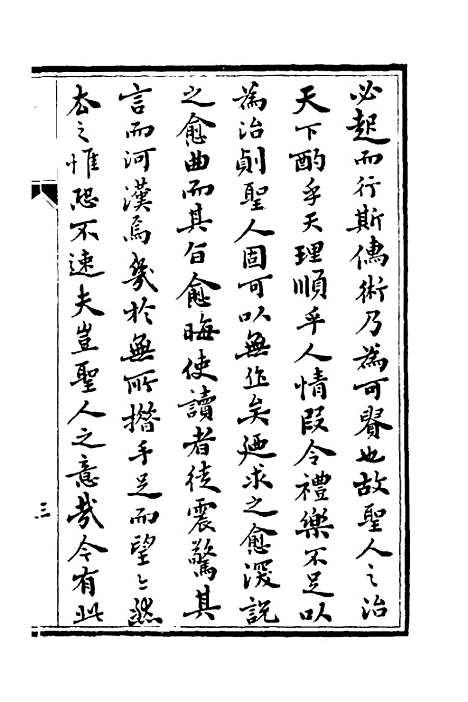 必起而行斯儒術乃為可貴也故聖人之治
天下酌乎天理順乎人情叚令禮樂不足以
為治則聖人固可以無作矣廼求之愈深說
之愈曲而其旨愈晦使讀者徒震驚其
言而河漢焉幾於無所措手足而望望然
去之惟恐不速夫豈聖人之意哉今有此
三